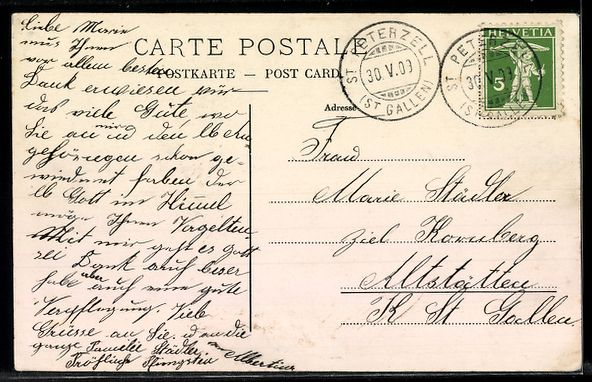 Liebe Marie
mus Ihnen
vor allem besten
Dank erwiesen für
das viele Gute wo
Sie an mir u den lb Ang
gehörigen schon ge-
widmet haben der
lb Gott im Himmel
möge Ihnen Vergelten
Mit mir geht es gott
sei Dank auf besser
habe aber auch eine gute
Verpflegung. Lieb
Grüsse an Sie. u an die
ganze Familie Städler
Fröhliche Pfingsten
Albertina
CARTE POSTALE
POSTKARTE — POST CARD
Adresse
ST. PETERZELL
30.V.09
(ST. GALLEN)
HELVETIA
5
ST. PETERZELL
30.V.09
Frau
Marie Städler
ziel Kornberg
Altstätten
K St Gallen